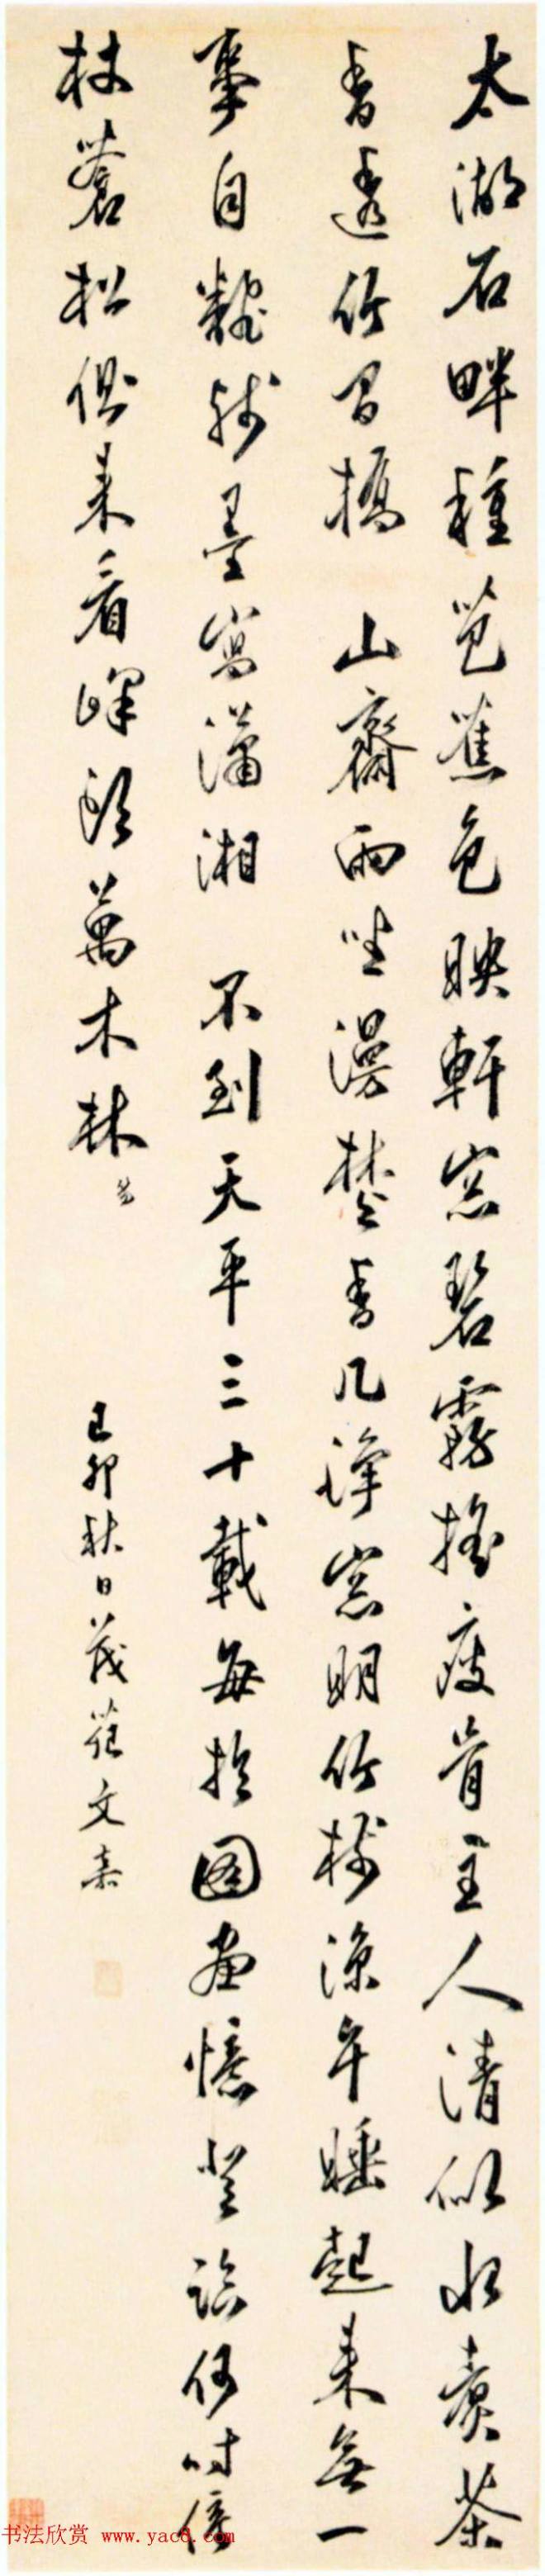 太湖石畔種芭蕉色映軒窓碧霧摇瘦骨主人清似水煮茶
香透竹間橋 山齋雨坐漫焚香几淨窓明竹樹涼午睡起来無一
事自翻殘墨寫瀟湖湘 不到天平三十載每於圖畫憶登臨何时倚
杖蒼松側来看峰頭萬木林
己卯秋日茂苑文嘉
书法欣赏 www.yac8.com